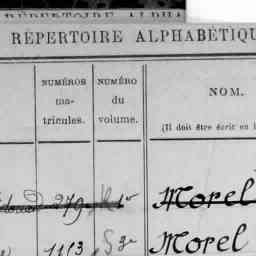 RÉPERTOIRE ALPHA
RÉPERTOIRE ALPHABÉTIQU
NUMÉROS
ma-
tricules.
NUMÉRO
du
volume.
NOM.
(Il doit être écrit en
279
Morel
1113
Morel